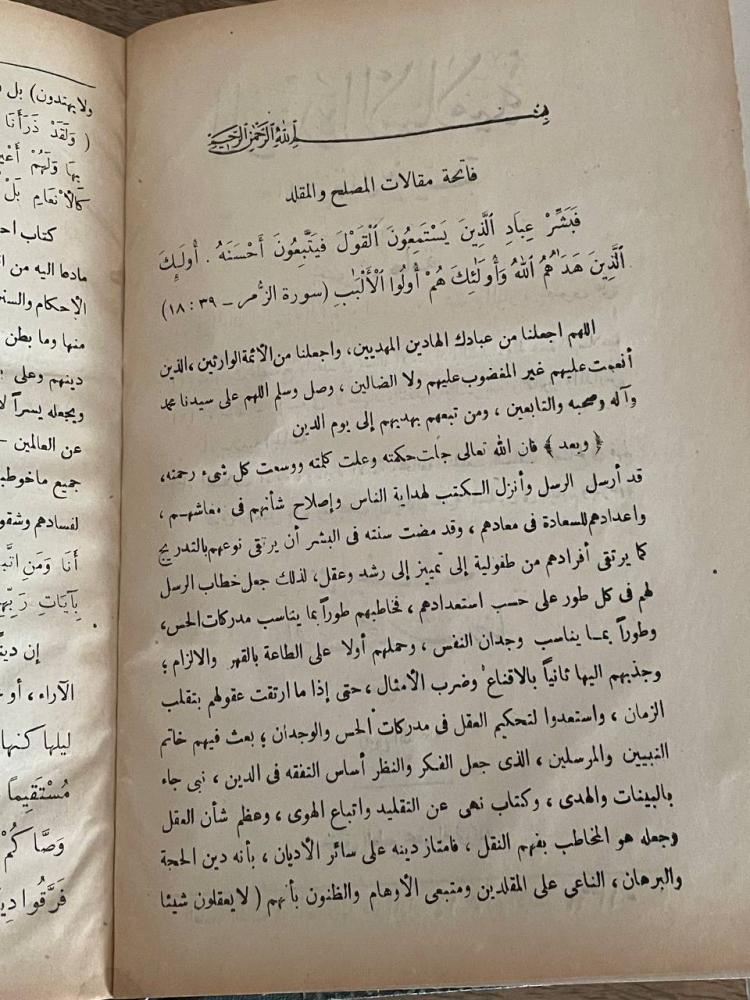 بسم الله الرحمن الرحيم
فاتحة مقالات المصلح والمقلد
فَبَشِّرْ عِبَادِ الَّذِينَ يَسْتَمِعُونَ الْقَوْلَ فَيَتَّبِعُونَ أَحْسَنَهُ . أُولَٰئِكَ
الَّذِينَ هَدَاهُمُ اللهُ وَأُولَٰئِكَ هُمْ أُولُوا الْأَلْبَٰبِ (سورة الزُّمر – ٣٩ : ١٨)
اللهم اجعلنا من عبادك الهادين المهديين، واجعلنا من الأئمة الوارثين، الذين
أنعمت عليهم غير المغضوب عليهم ولا الضالين ، وصل وسلم اللهم على سيدنا محمد
وآله وصحبه والتابعين ، ومن تبعهم بهديهم إلى يوم الدين
﴿ وبعد ﴾ فإن الله تعالى جلت حكمته وعلت كلمته ووسعت كل شيء رحمته،
قد أرسل الرسل وأنزل الكتب لهداية الناس وإصلاح شأنهم فى معاشهم ،
واعدادهم للسعادة فى معادهم ، وقد مضت سنته فى البشر أن يرتقى نوعهم بالتدريج
كما يرتقى أفرادهم من طفولية إلى تمييز إلى رشد وعقل، لذلك جعل خطاب الرسل
لهم فى كل طور على حسب استعدادهم ، فخاطبهم طوراً بما يناسب مدركات الحس،
وطوراً بما يناسب وجدان النفس ، وحملهم أولا على الطاعة بالقهر والالزام ؛
وجذبهم اليها ثانياً بالاقناع وضرب الأمثال ، حتى إذا ما ارتقت عقولهم بتقلب
الزمان ، واستعدوا لتحكيم العقل فى مدركات الحس والوجدان ؛ بعث فيهم خاتم
النبيين والمرسلين ، الذى جعل الفكر والنظر أساس التفقه فى الدين ، نبى جاء
بالبينات والهدى ، وكتاب نهى عن التقليد واتباع الهوى ، وعظم شأن العقل
وجعله هو المخاطب بفهم النقل ، فامتاز دينه على سائر الأديان ، بأنه دين الحجة
والبرهان ، الناعى على المقلدين ومتبعى الأوهام والظنون بأنهم ( لا يعقلون شيئا
ولا يهتدون) بل
( وَلَقَدْ ذَرَأْنَا
بِهَا وَلَهُمْ
كَالْأَنْعَامِ بَلْ
كتاب
اليه من
الإحكام
منها وما بطن
دينهم وعلى
ويجعله يسراً
عن العالمين –
جميع
لفسادهم
أَنَا وَمَنِ
بِآيَاتِ
إن
الآراء ، أو
ليلها كنها
مُسْتَقِيماً
وَصَّاكُمْ
فَرَّقُوا